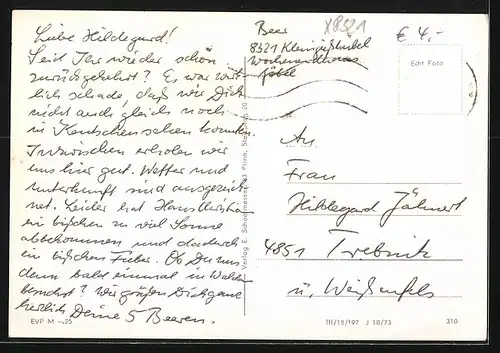 Liebe Hildegard!
Seid Ihr wieder schön
zurückgekehrt? Es war wirk-
lich schade, daß wir Dich
nicht auch gleich noch
in Kentschen sehen konnten.
Inzwischen erholen wir
uns hier gut. Wetter und
Unterkunft sind ausgezeich-
net. Leider hat Hans-Christian
ein bißchen zu viel Sonne
abbekommen und dadurch
ein bißchen Fieber. Ob Du uns
denn bald einmal in Walden
besuchst? Wir grüßen Dich ganz
herzlich Deine 5 Beeren.
EVP M -,25
Beer
8321
Wochenendhaus
X8521
€ 4,-
Echt Foto
An
Frau
Hildegard Jähnert
4851 Trebnitz
ü. Weißenfels
III/15/197 J 18/73 310